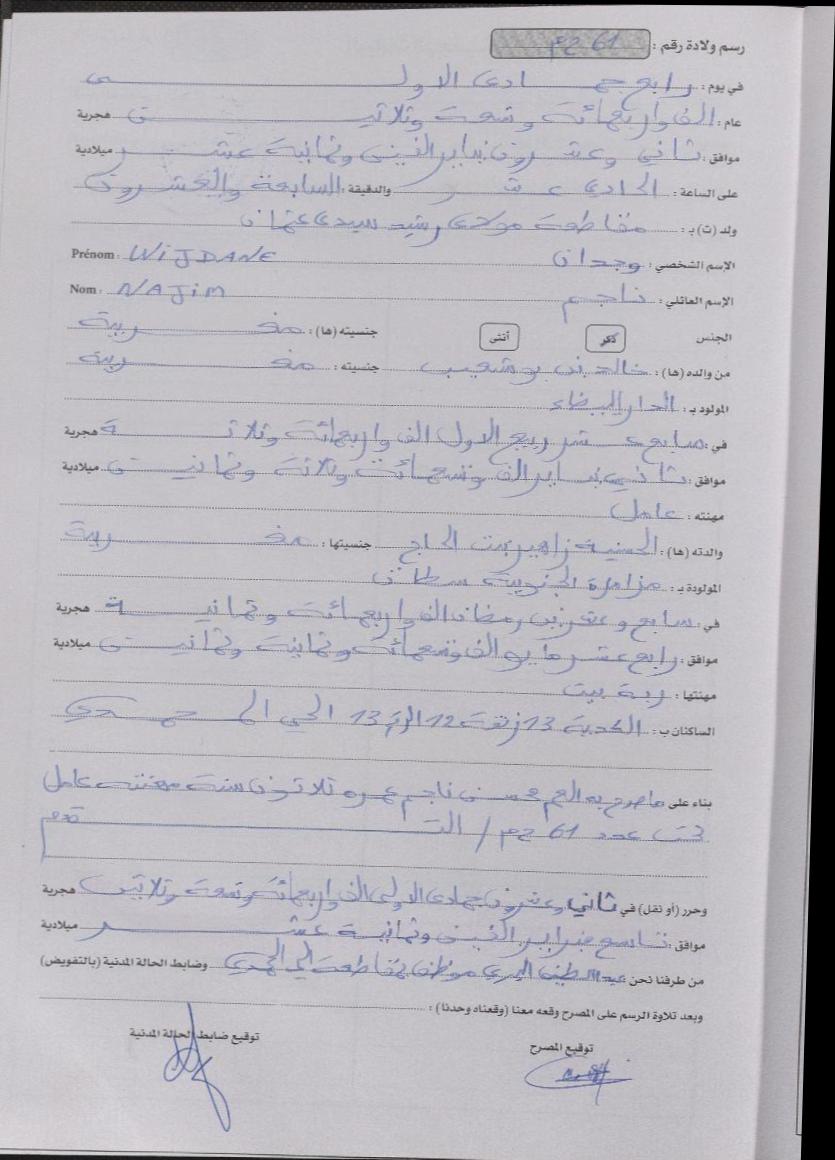 رسم ولادة رقم : 61 ح م
في يوم : رابع جمادى الاولى
عام : الف واربعمائة وتسعة وثلاثين هجرية
موافق : ثاني وعشرون يناير الفين وثمانية عشر ميلادية
على الساعة : الحادي عشر والدقيقة : السابعة والعشرون
ولد (ت) بـ : مقاطعة مولاي رشيد سيدي عثمان
الإسم الشخصي : وجدان Prénom : WIJDANE
الإسم العائلي : ناجم Nom : NAJIM
الجنس ذكر أنثى جنسيته (ها) : مغربية
من والده (ها) : خالد بن بوشعيب جنسيته : مغربية
المولود بـ : الدار البيضاء
في : سابع عشر ربيع الاول الف واربعمائة وثلاثة هجرية
موافق : ثاني يناير الف وتسعمائة وثلاثة وثمانين ميلادية
مهنته : عامل
والدته (ها) : الحسنية زاهير بنت الحاج جنسيتها : مغربية
المولودة بـ : مزامزة الجنوبية سطات
في : سابع وعشرين رمضان الف واربعمائة وثمانية هجرية
موافق : رابع عشر مايو الف وتسعمائة وثمانية وثمانين ميلادية
مهنتها : ربة بيت
الساكنان بـ : الكدية 13 زنقة 12 الرقم 13 الحي المحمدي
بناء على ما صرح به العم محسن ناجم عمره ثلاثون سنة مهنته عامل
تحت عدد 61 ح م /
وحرر (أو نقل) في ثاني وعشرون جمادى الاولى الف واربعمائة وتسعة وثلاثين هجرية
موافق : تاسع فبراير الفين وثمانية عشر ميلادية
من طرفنا نحن : موظف بمقاطعة الحي المحمدي وضابط الحالة المدنية (بالتفويض)
وبعد تلاوة الرسم على المصرح وقعه معنا (وقعناه وحدنا) :
توقيع المصرح توقيع ضابط الحالة المدنية